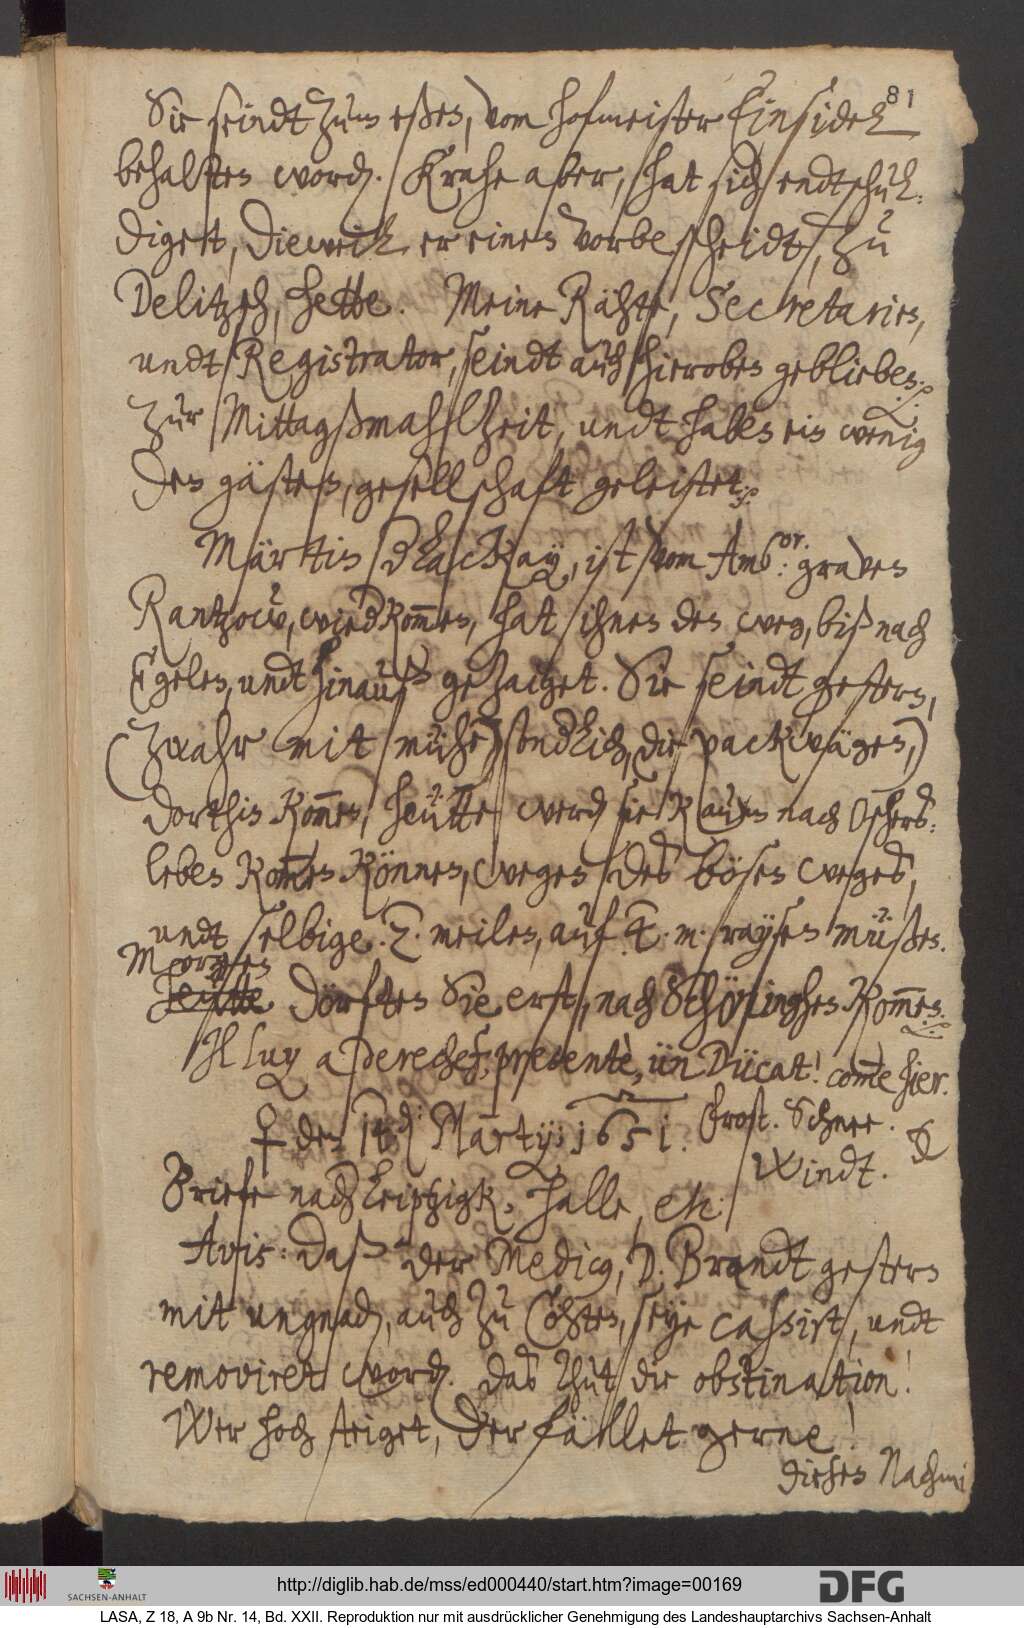 81
Sie seindt zum eßen, vom hofmeister Einsidel
behalten word(en). Krahe aber, hat sich endtschul-
diget, dieweil er einen vorbescheidt, zu
Delitzsch, hette. Meine Rähte, Secretarien,
undt Registrator, seindt auch hieroben geblieben
zur Mittagßmahlzeit, undt haben ein wenig
den gästen, gesellschaft geleistet.
Märtin Schackay, ist vom Amb:or: graven
Rantzow, wied(er) kom̅en, hat ihnen den weg, biß nach
Egelen, undt hinauß gezaiget. Sie seindt gestern,
(zwahr mit mühe, sondlich, die packwägen,)
dorthin kom̅en, heütte werd(en) sie kaum nach Oschers-
leben kom̅en können, wegen des bösen weges,
undt selbige 2. meilen, auf 4. m. raysen müßen.
Morgen
heütte dörften Sie erst, nach Schöninghen kom̅en.
Il luy a derechef, presentè, ün Dücat! com̅e hier.
♀ den 14.d: Martij: 1651. Frost. Schnee.
Windt.
Briefe nach Leiptzigk, Halle, etc:
Avis: daß der Medicus, D. Brandt gestern
mit ungnad(en), auch zu Cöhten, seye cassirt, undt
removiret word(en). das thut die obstination!
Wer hoch steiget, der fället gerne!
Diesen Nachmi
http://diglib.hab.de/mss/ed000440/start.htm?image=00169
SACHSEN-ANHALT
DFG
LASA, Z 18, A 9b Nr. 14, Bd. XXII. Reproduktion nur mit ausdrücklicher Genehmigung des Landeshauptarchivs Sachsen-Anhalt